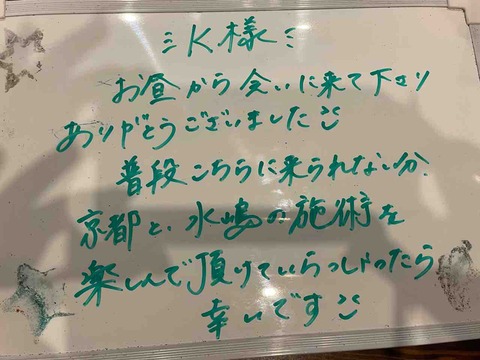 K様
お昼から会いに来て下さり
ありがとうございました
普段こちらに来られないか、
京都と、水嶋の施術を
楽しんで頂けていらっしゃったら
幸いです